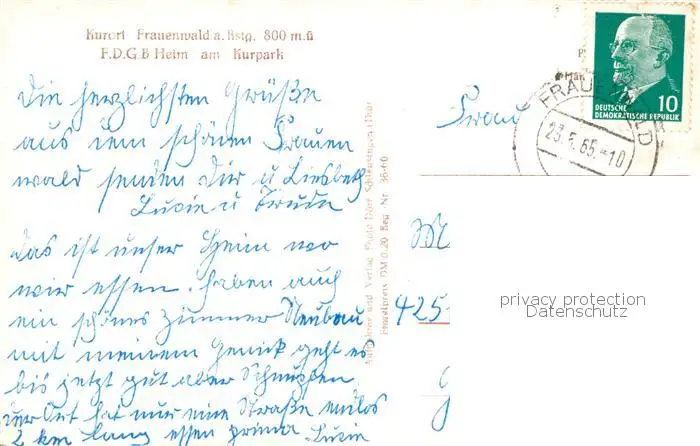 Kurort Frauenwald a. Rstg. 800 m.ü
F.D.G.B Heim am Kurpark
Die herzlichsten Grüße
aus dem schönen Frauen
wald senden Dir u Liesbeth
Luzie u Trude
das ist unser Heim wo
wir essen. haben auch
ein schönes Zimmer Neubau
mit meinem Genick geht es
bis jetzt gut aber Schnupfen
der Ort hat nur eine Straße
2 km lang essen prima Luzie
Aufnahme und Verlag Photo-Dörr, Schleusingen/Thür
Einzelpreis DM 0,20 Reg.-Nr.
FRAUENWALD
23.5.65.-10
10
DEUTSCHE
DEMOKRATISCHE REPUBLIK
Frau
M
425
privacy protection
Datenschutz